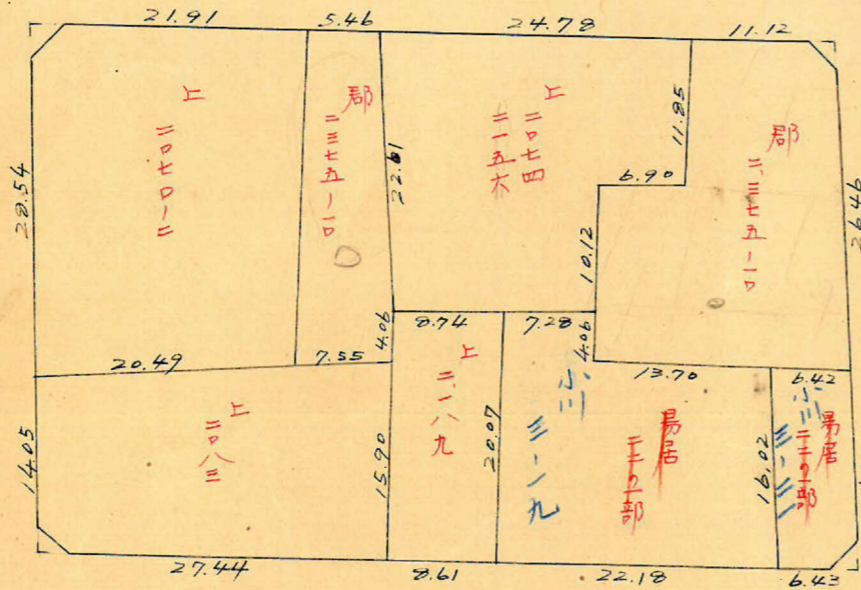 21.91
5.46
24.78
11.12
28.54
上
二〇七〇ノ二
郡
二三七五ノ一〇
22.61
上
二〇七四
二一五六
11.85
6.90
10.12
郡
二、三七五ノ一〇
26.46
4.06
8.74
7.28
4.06
20.49
7.55
13.70
6.42
14.05
上
二〇八三
15.90
上
二、一八九
20.07
小川
三ノ一九
易居
二二の一部
16.02
小川
易居
二二の一部
27.44
8.61
22.18
6.43